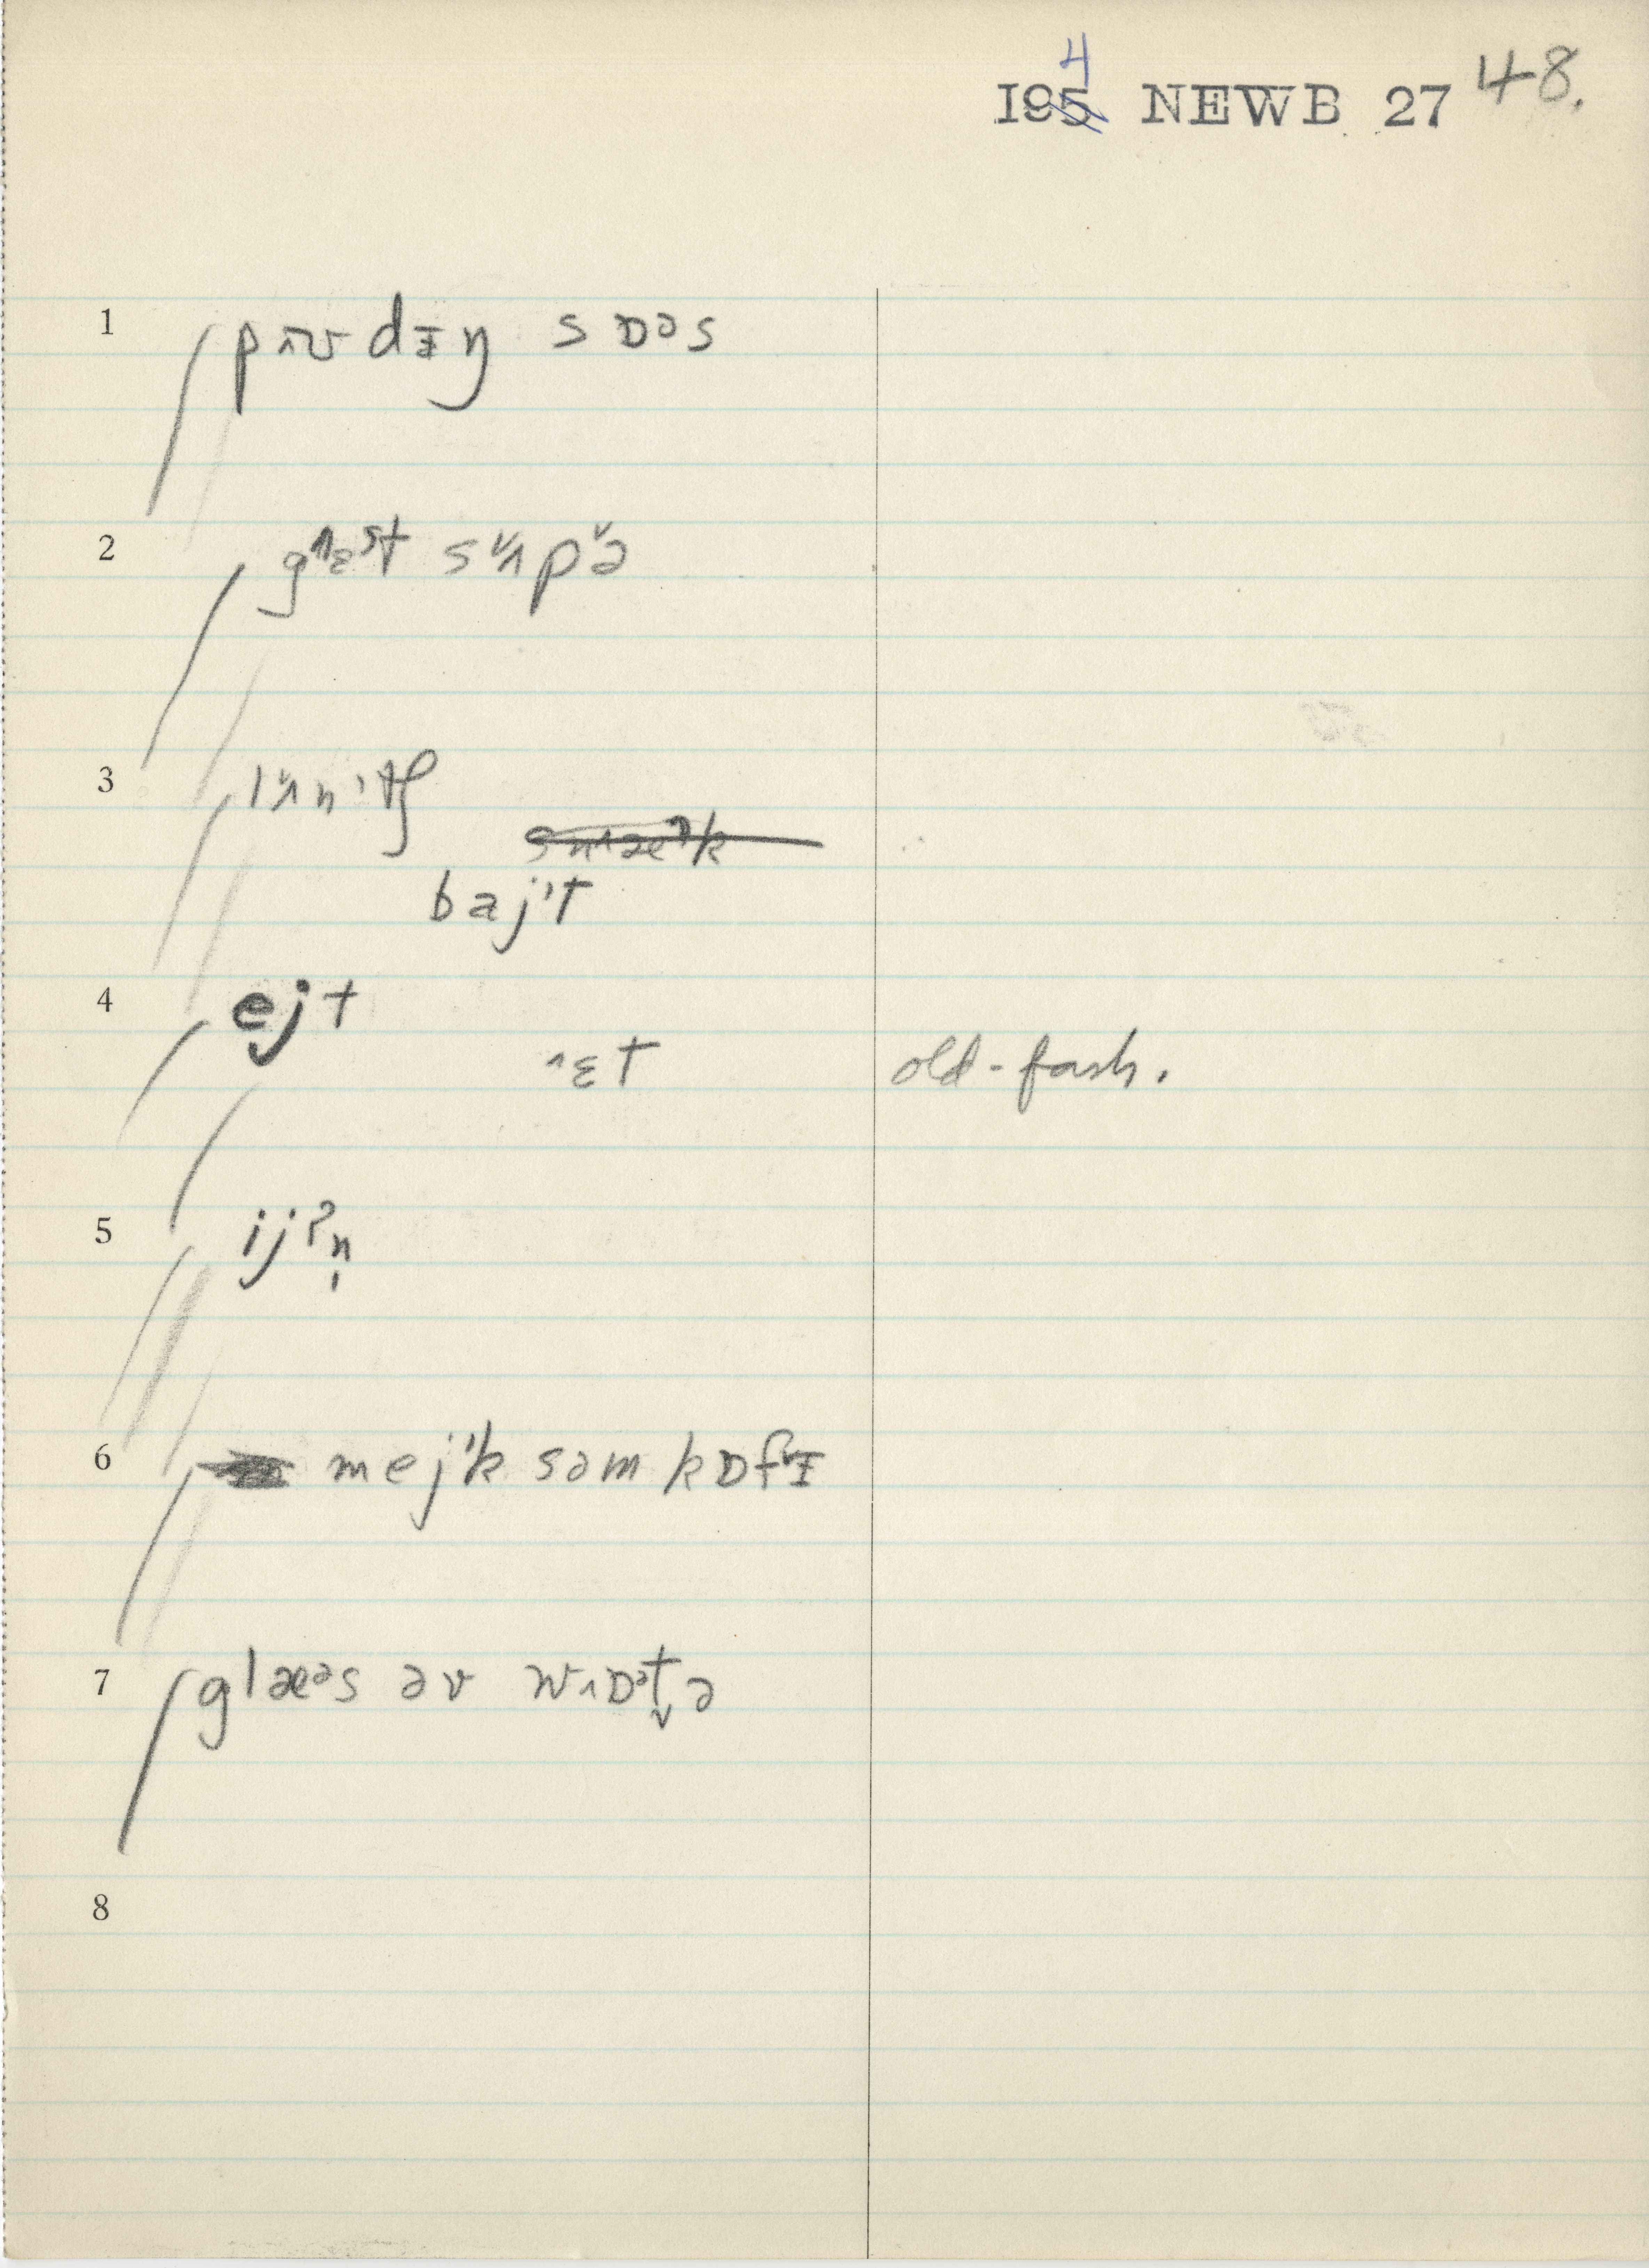 I94 NEWB 27 48.
1 pʌʊdɪŋ sɒəs
2 gɛst sʌpə
3 lʌnɪtʃ
bajɪt
4 ejt
ɛt old-fash.
5 ijʔn̩
6 mejk səm kɒfɪ
7 glæəs əv wɒətə
8